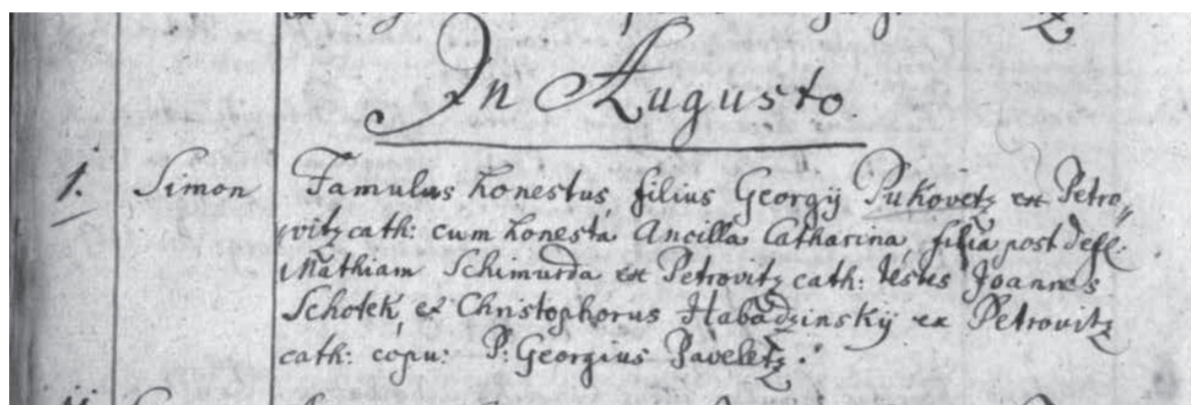 In Augusto.
1. Simon Famulus honestus, filius Georgÿ Pukovetz ex Petro„
vitz cath: cum honestâ Ancillâ Catharina, filia post def:
Mathiam Schimurda ex Petrovitz cath: testes Joannes
Schotek, et Christophorus Habadzinskÿ ex Petrovitz
cath: copu: P: Georgius Paveletz.